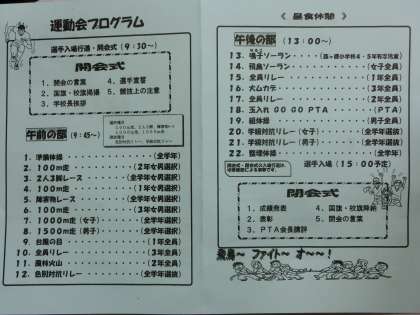 運動会プログラム
選手入場行進・開会式(9:30〜)
開会式
1．開会の言葉
2．国旗・校旗掲揚
3．学校長挨拶
4．選手宣誓
5．競技上の注意
午前の部 (9:45〜)
1．準備体操 (全学年)
2．100m走 (2年女男選択)
3．2人3脚レース (全学年女男選択)
4．100m走 (1年女男選択)
5．障害物レース (全学年女男選択)
6．100m走 (3年女男選択)
7．1000m走(女子) (全学年選択)
8．1500m走(男子) (全学年選択)
9．台風の目 (1年全員)
10．全員リレー (3年全員)
11．風林火山 (2年全員)
12．色別対抗リレー (全学年選抜)
《 昼食休憩 》
午後の部 (13:00〜)
13．鳴子ソーラン
14．飛鳥ソーラン (女子全員)
15．全員リレー (1年全員)
16．大ムカデ (3年全員)
17．全員リレー (2年全員)
18．玉入れ GO GO PTA (PTA)
19．組体操 (男子全員)
20．学級対抗リレー(女子) (全学年)
21．学級対抗リレー(男子) (全学年)
22．整理体操 (全学年)
選手入場(15:00予定)
閉会式
1．成績発表
2．表彰
3．PTA会長講評
4．国旗・校旗降納
5．閉会の言葉
飛鳥〜 ファイト オ〜〜！